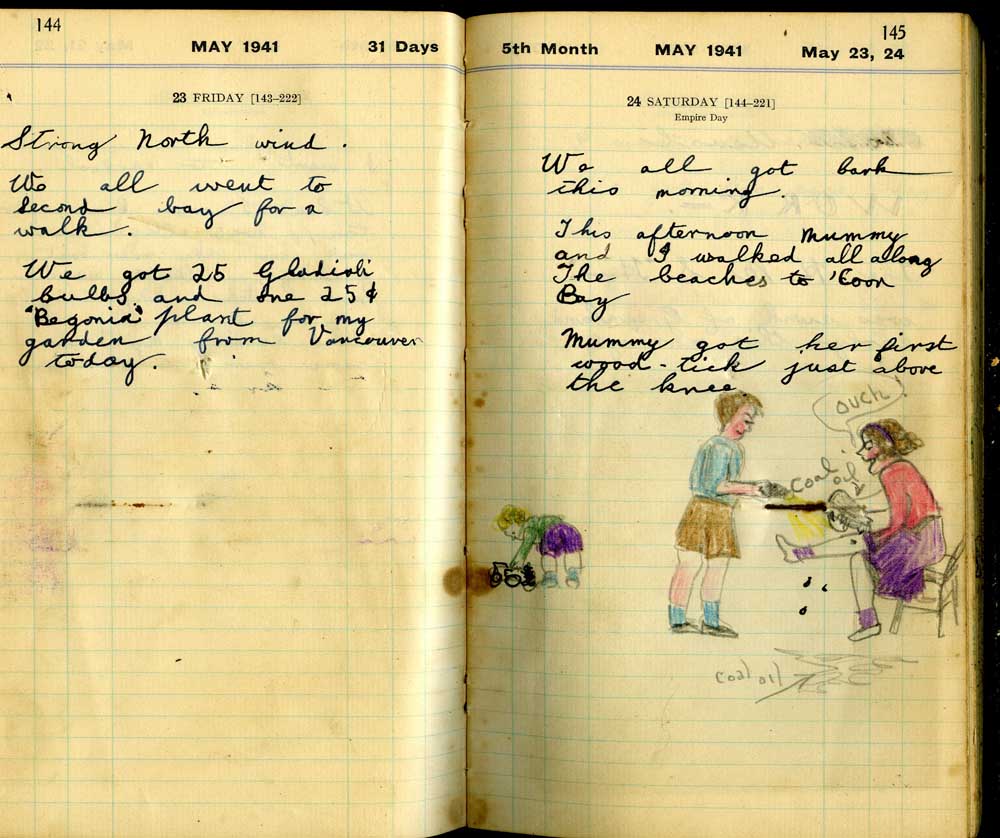 144
MAY 1941 31 Days
23 FRIDAY [143–222]
Strong North wind.
We all went to
second bay for a
walk.
We got 25 Gladioli
bulbs and one 25¢
"Begonia" plant for my
garden from Vancouver
today.
145
5th Month MAY 1941 May 23, 24
24 SATURDAY [144–221]
Empire Day
We all got bark
this morning.
This afternoon Mummy
and I walked all along
The beaches to 'Coon
Bay
Mummy got her first
wood-tick just above
the knee
ouch!
coal oil
coal oil